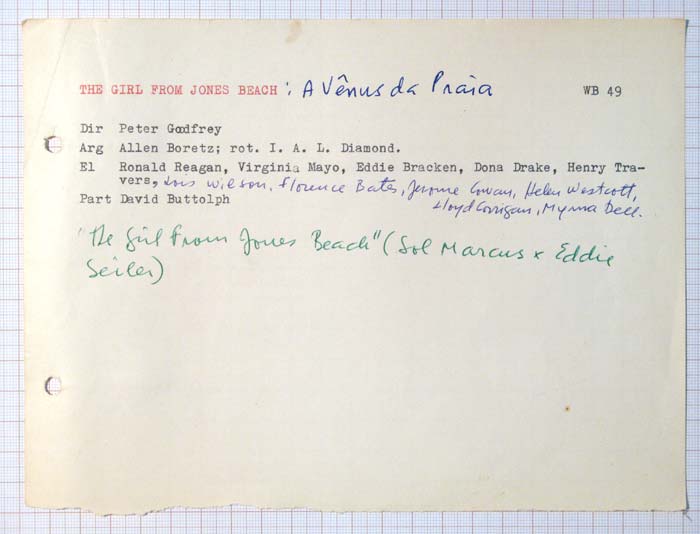 THE GIRL FROM JONES BEACH : A Vênus da Praia WB 49
Dir Peter Godfrey
Arg Allen Boretz; rot. I. A. L. Diamond.
El Ronald Reagan, Virginia Mayo, Eddie Bracken, Dona Drake, Henry Tra-
vers, Lois Wilson, Florence Bates, Jerome Cowan, Helen Westcott,
Lloyd Corrigan, Myrna Dell.
Part David Buttolph
"The Girl From Jones Beach" (Sol Marcus x Eddie
Seiler)